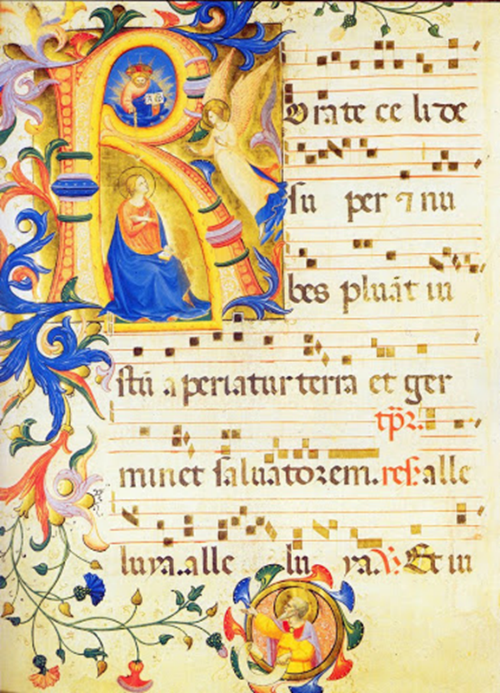 Rorate ce li de
su per ⁊ nu
bes pluāt iu
stū aperiatur terra et ger
tp̄r.
minet saluatorem. res. alle
luya. alle lu ya. ℣. Et iu